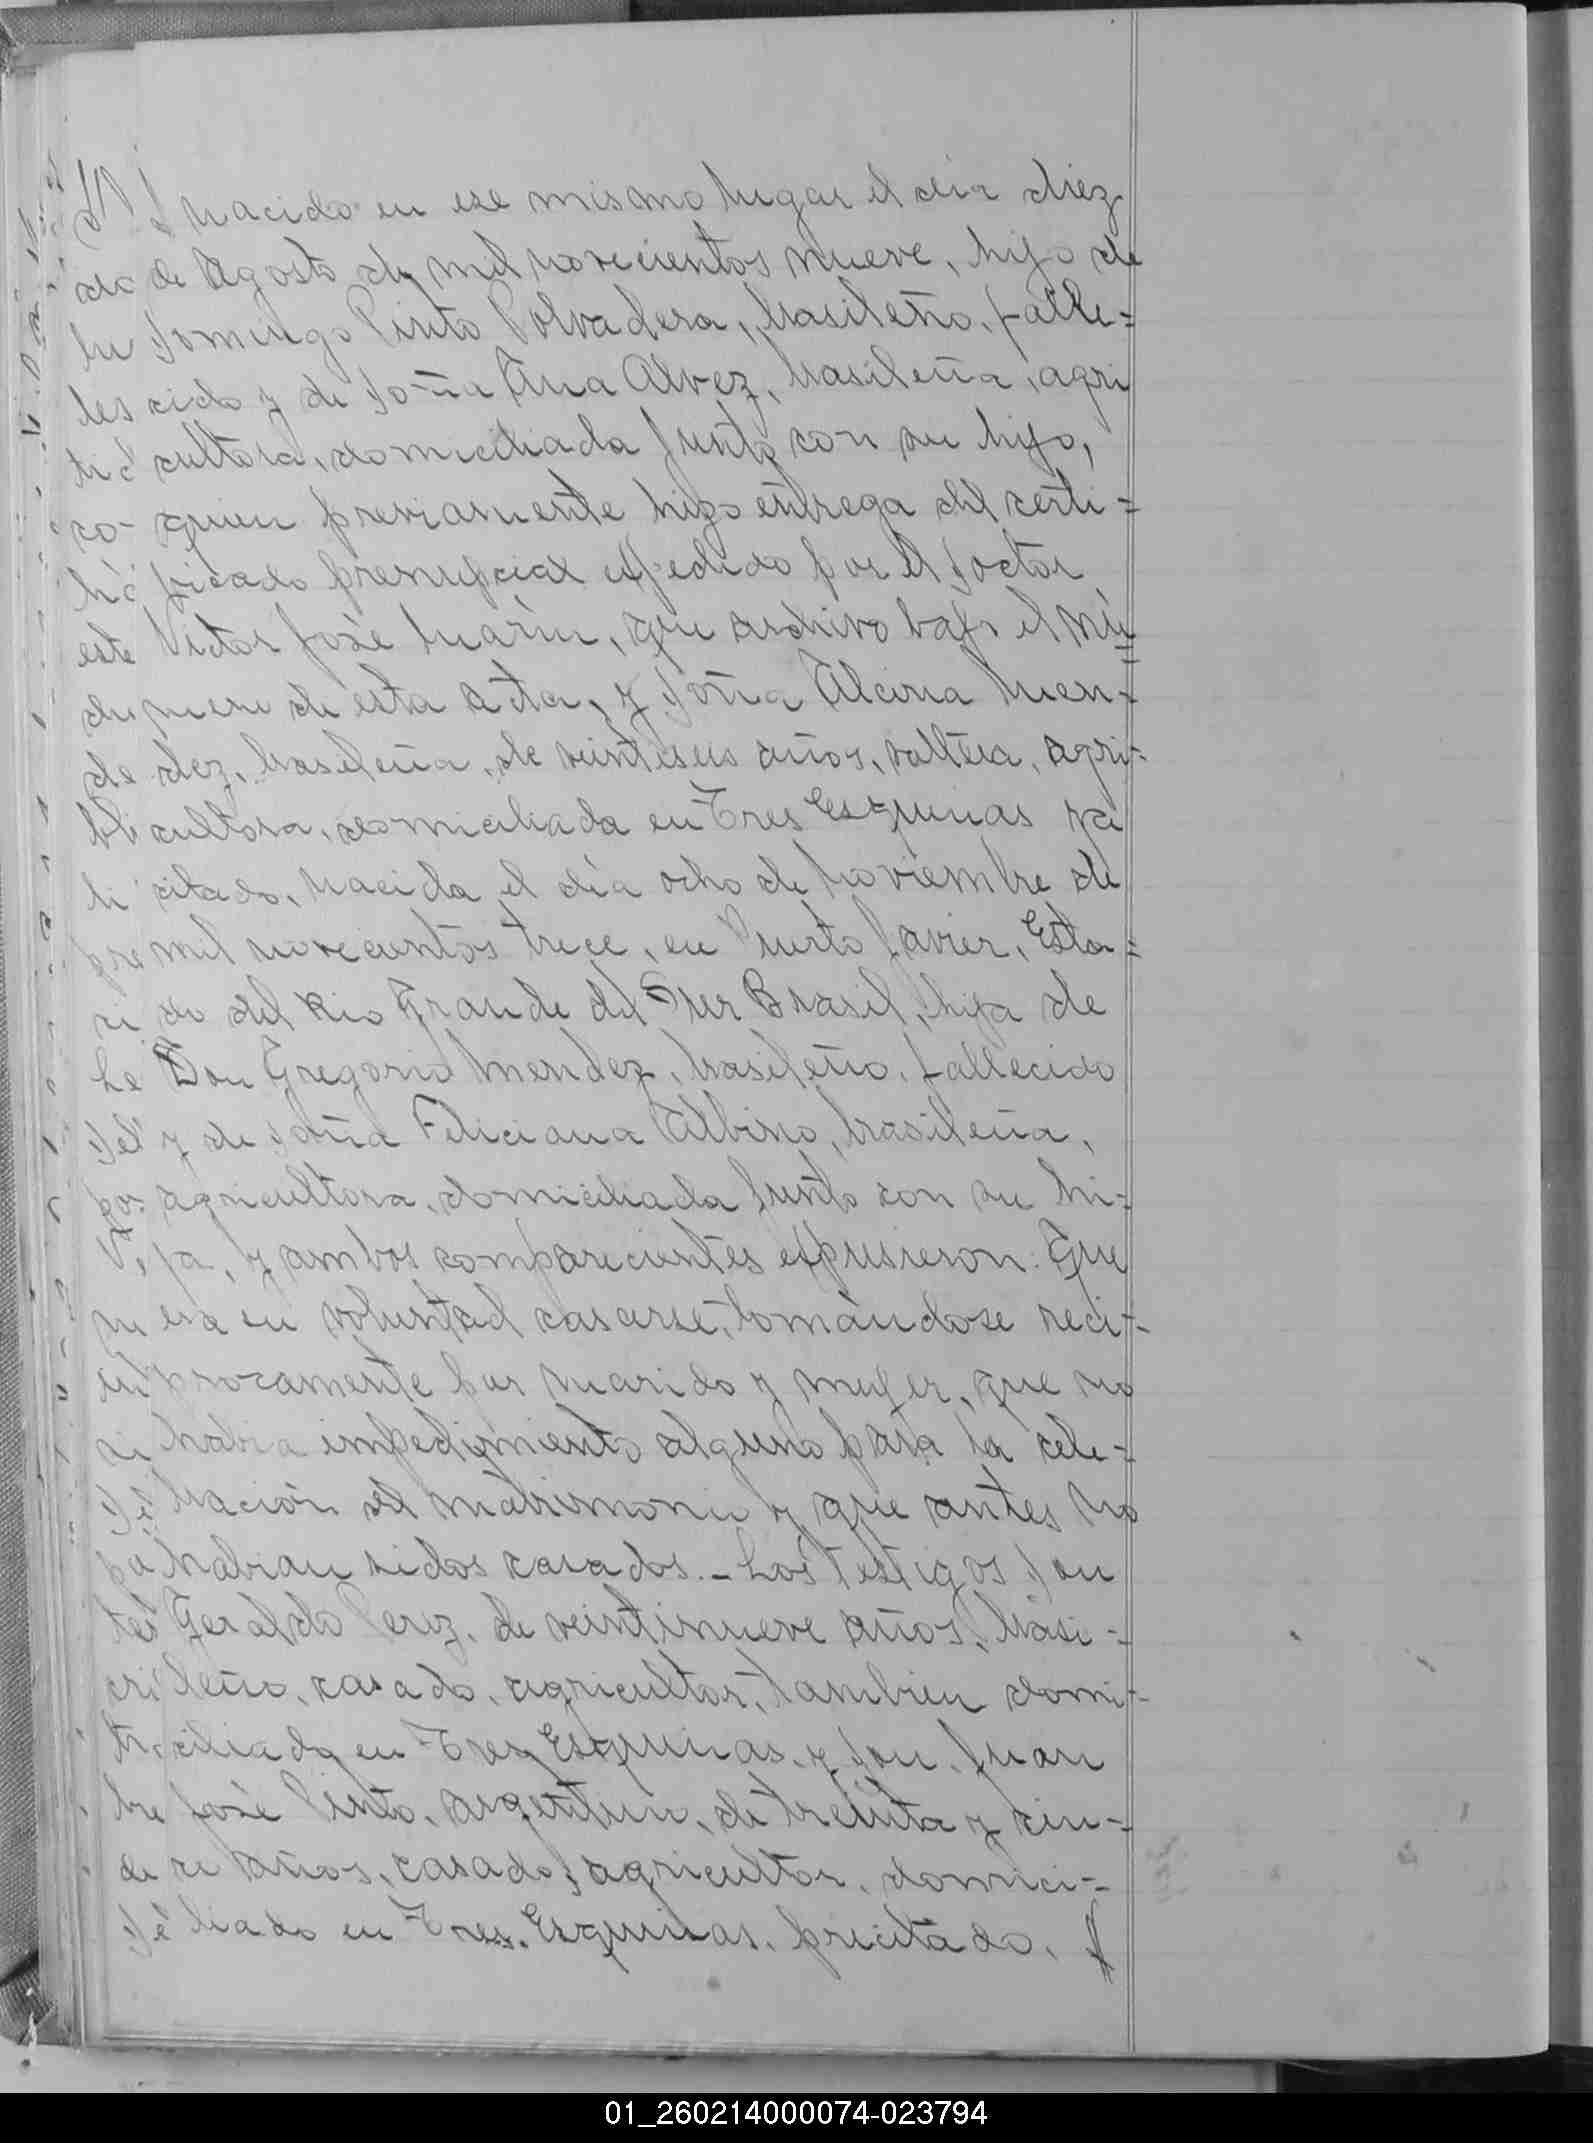 nacido en ese mismo lugar el dia diez
de Agosto de mil novecientos nueve, hijo de
Domingo Pinto Polvadera, brasileño, falle=
cido y de Doña Ana Alvez, brasileña, agri
cultora, domiciliada junto con su hijo,
quien previamente hizo entrega del certi=
ficado prenupcial expedido por el Doctor
Victor José Marin, que archivo bajo el nú
mero de esta acta, y Doña Alcina Men=
dez, brasileña, de veintiseis años, soltera, agri-
cultora, domiciliada en Tres Esquinas ya
citado, nacida el día ocho de Noviembre de
mil novecientos trece, en Puerto Javier, Esta=
do del Rio Grande del Sur Brasil, hija de
Don Gregorio Mendez, brasileño, fallecido
y de Doña Feliciana Albino, brasileña,
agricultora, domiciliada junto con su hi-
ja, y ambos comparecientes expusieron: Que
era su voluntad casarse, tomándose reci-
procamente por marido y mujer, que no
habia impedimento alguno para la cele-
bración del matrimonio y que antes no
habian sidos casados.- Los testigos Don
Geraldo Perez, de veintinueve años, brasi=
leño, casado, agricultor, tambien domi-
ciliado en Tres Esquinas, y Don Juan
José Pinto, argentino, de treinta y cin-
co años, casado, agricultor, domici-
liado en Tres Esquinas, precitado,
01_260214000074-023794